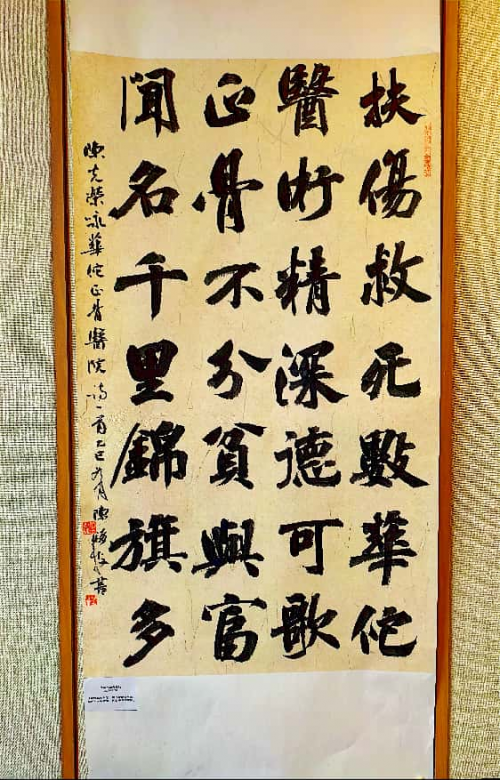 扶傷救死數華佗
醫術精深德可歌
正骨不分貧與富
聞名千里錦旗多
陳克榮詠華佗正骨醫院詩一首乙巳九月陳 書